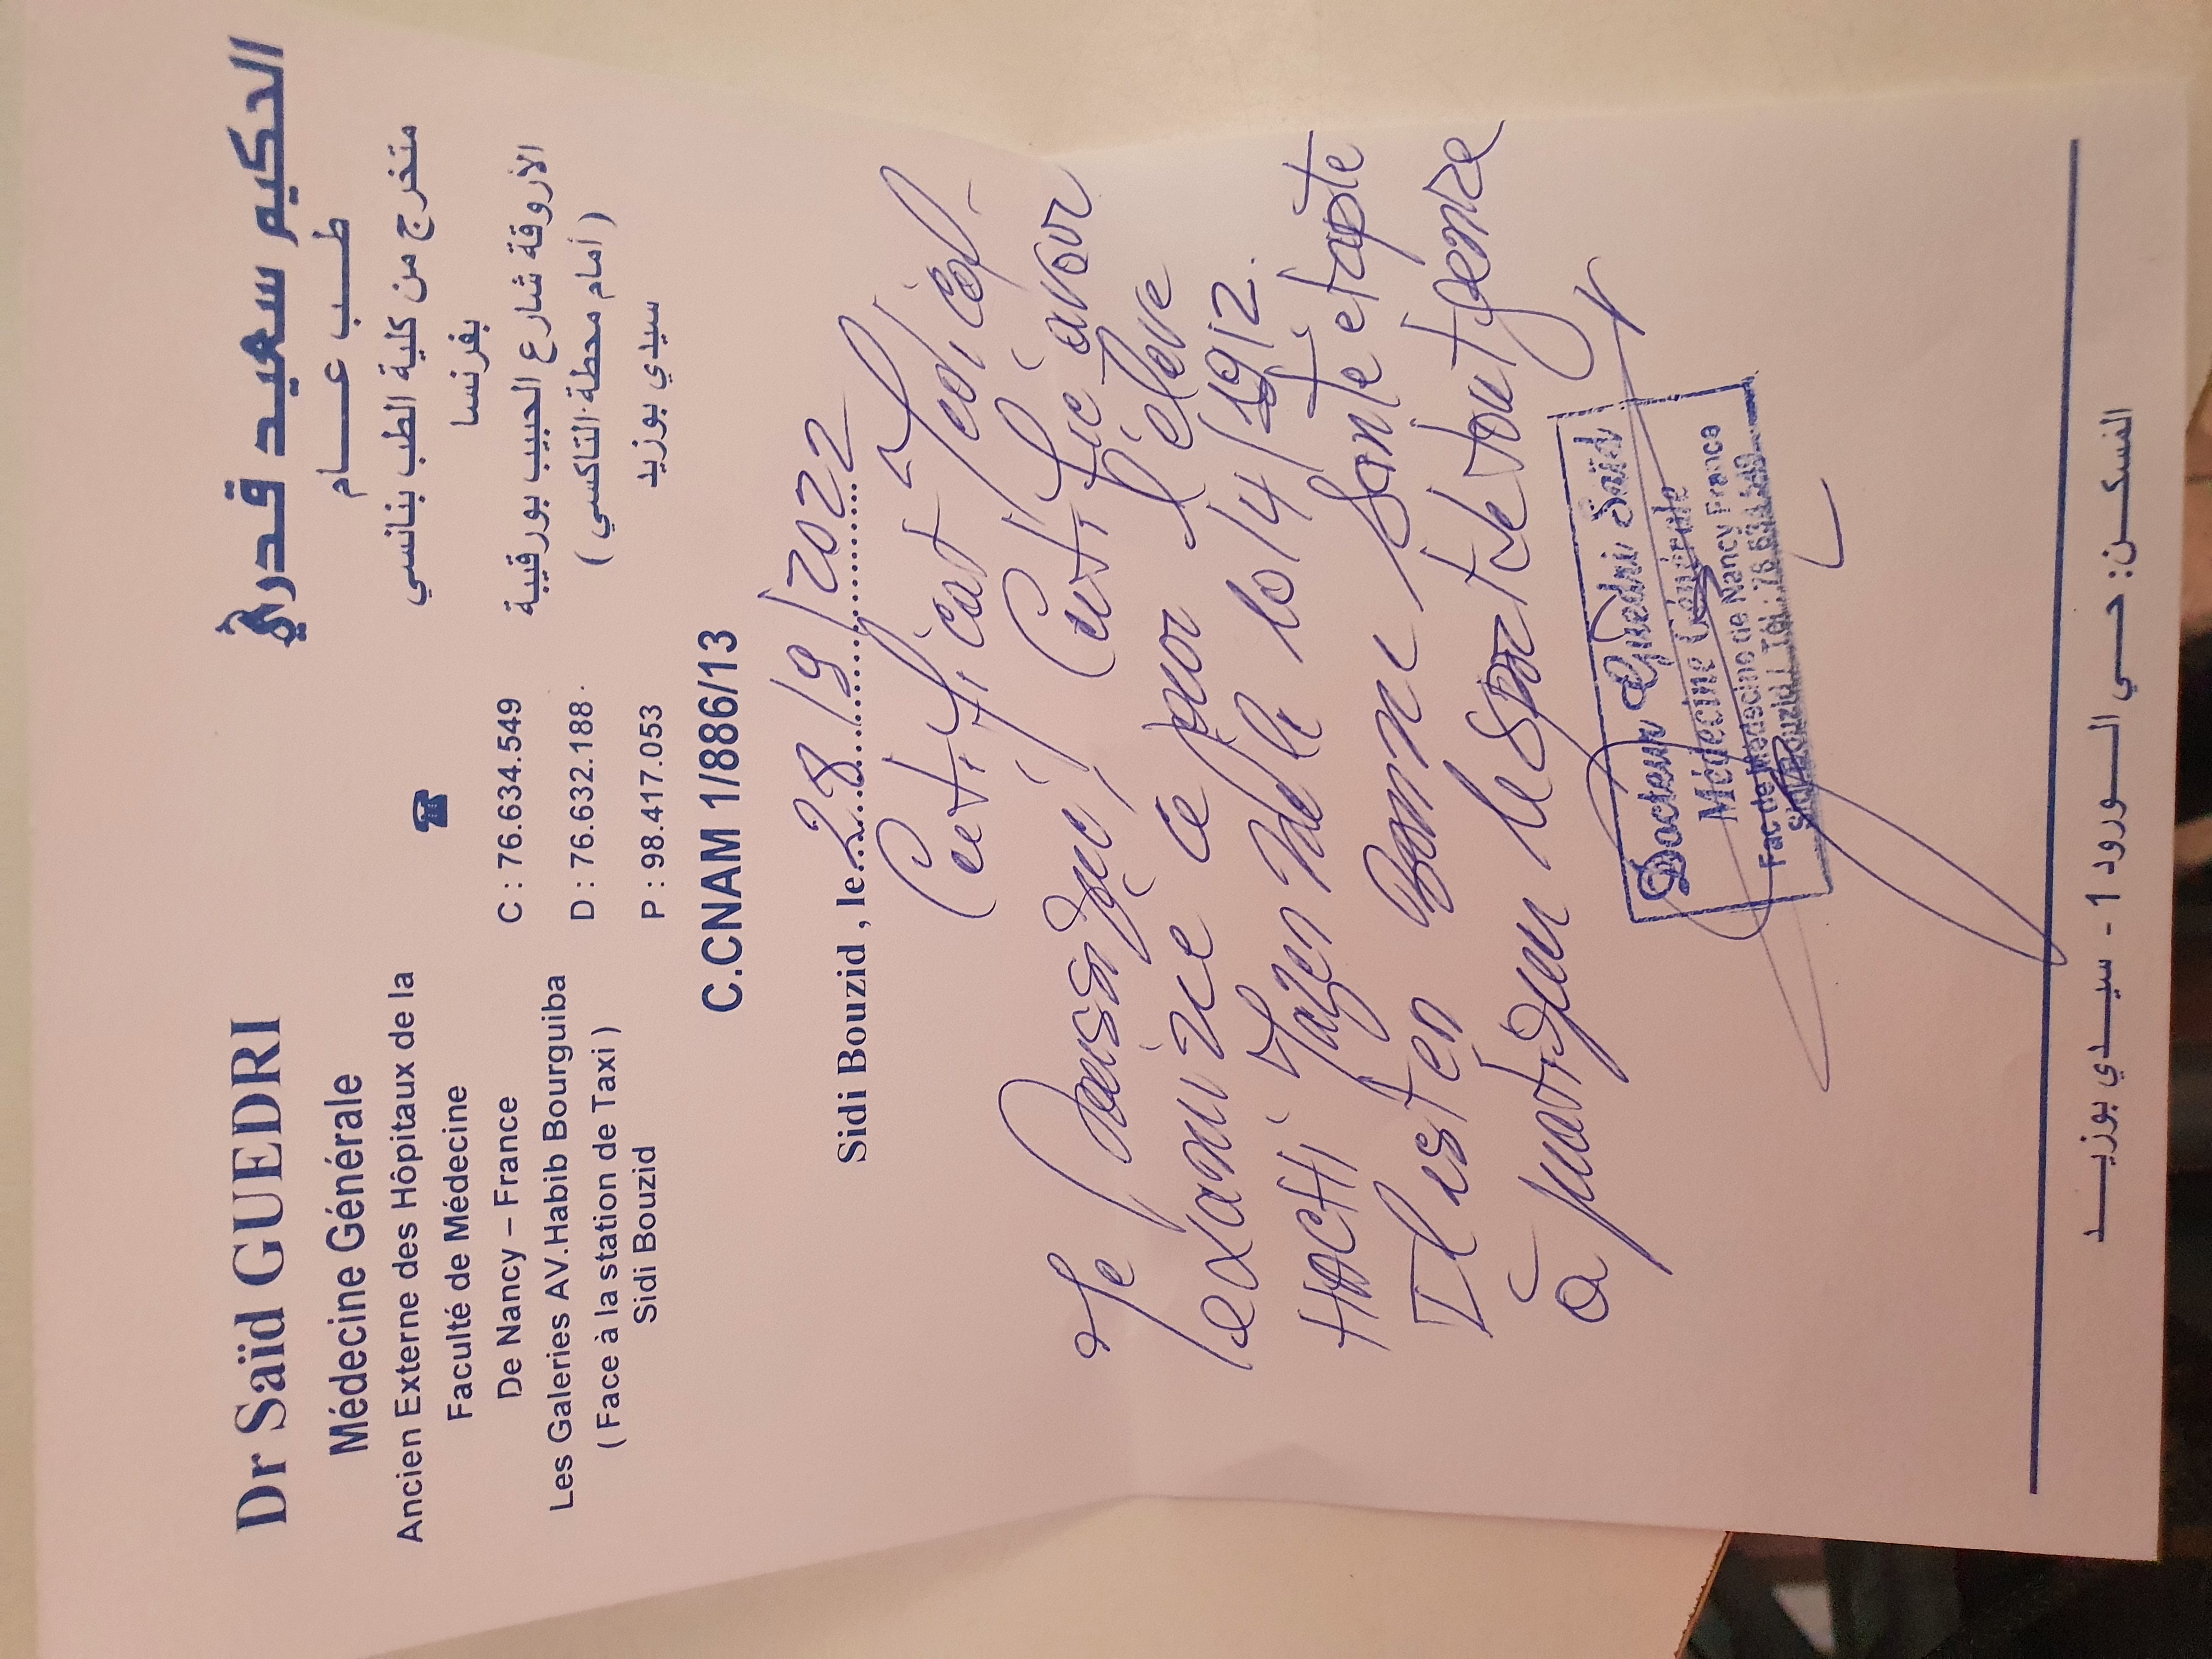 Dr Saïd GUEDRI
Médecine Générale
Ancien Externe des Hôpitaux de la
Faculté de Médecine
De Nancy – France
Les Galeries AV.Habib Bourguiba
( Face à la station de Taxi )
Sidi Bouzid
☎
C : 76.634.549
D : 76.632.188
P : 98.417.053
الحكيم سعيد قدري
طـــب عــــام
متخرج من كلية الطب بنانسي
بفرنسا
الأروقة شارع الحبيب بورقيبة
( أمام محطة التاكسي )
سيدي بوزيد
C.CNAM 1/886/13
Sidi Bouzid , le 28/9/2022
Certificat Médical
Je soussigné, Certifie avoir
examiné ce jour l'élève
HACHI Mazen Né le 10/4/
Il est en Bonne Santé et apte
à pratiquer le sport de tout genre
Docteur Guedri Saïd
Médecine Générale
Fac de Médecine de Nancy France
Sidi Bouzid Tél :
المسكـــن : حــي الـــورود 1 - سيـــدي بوزيـــد